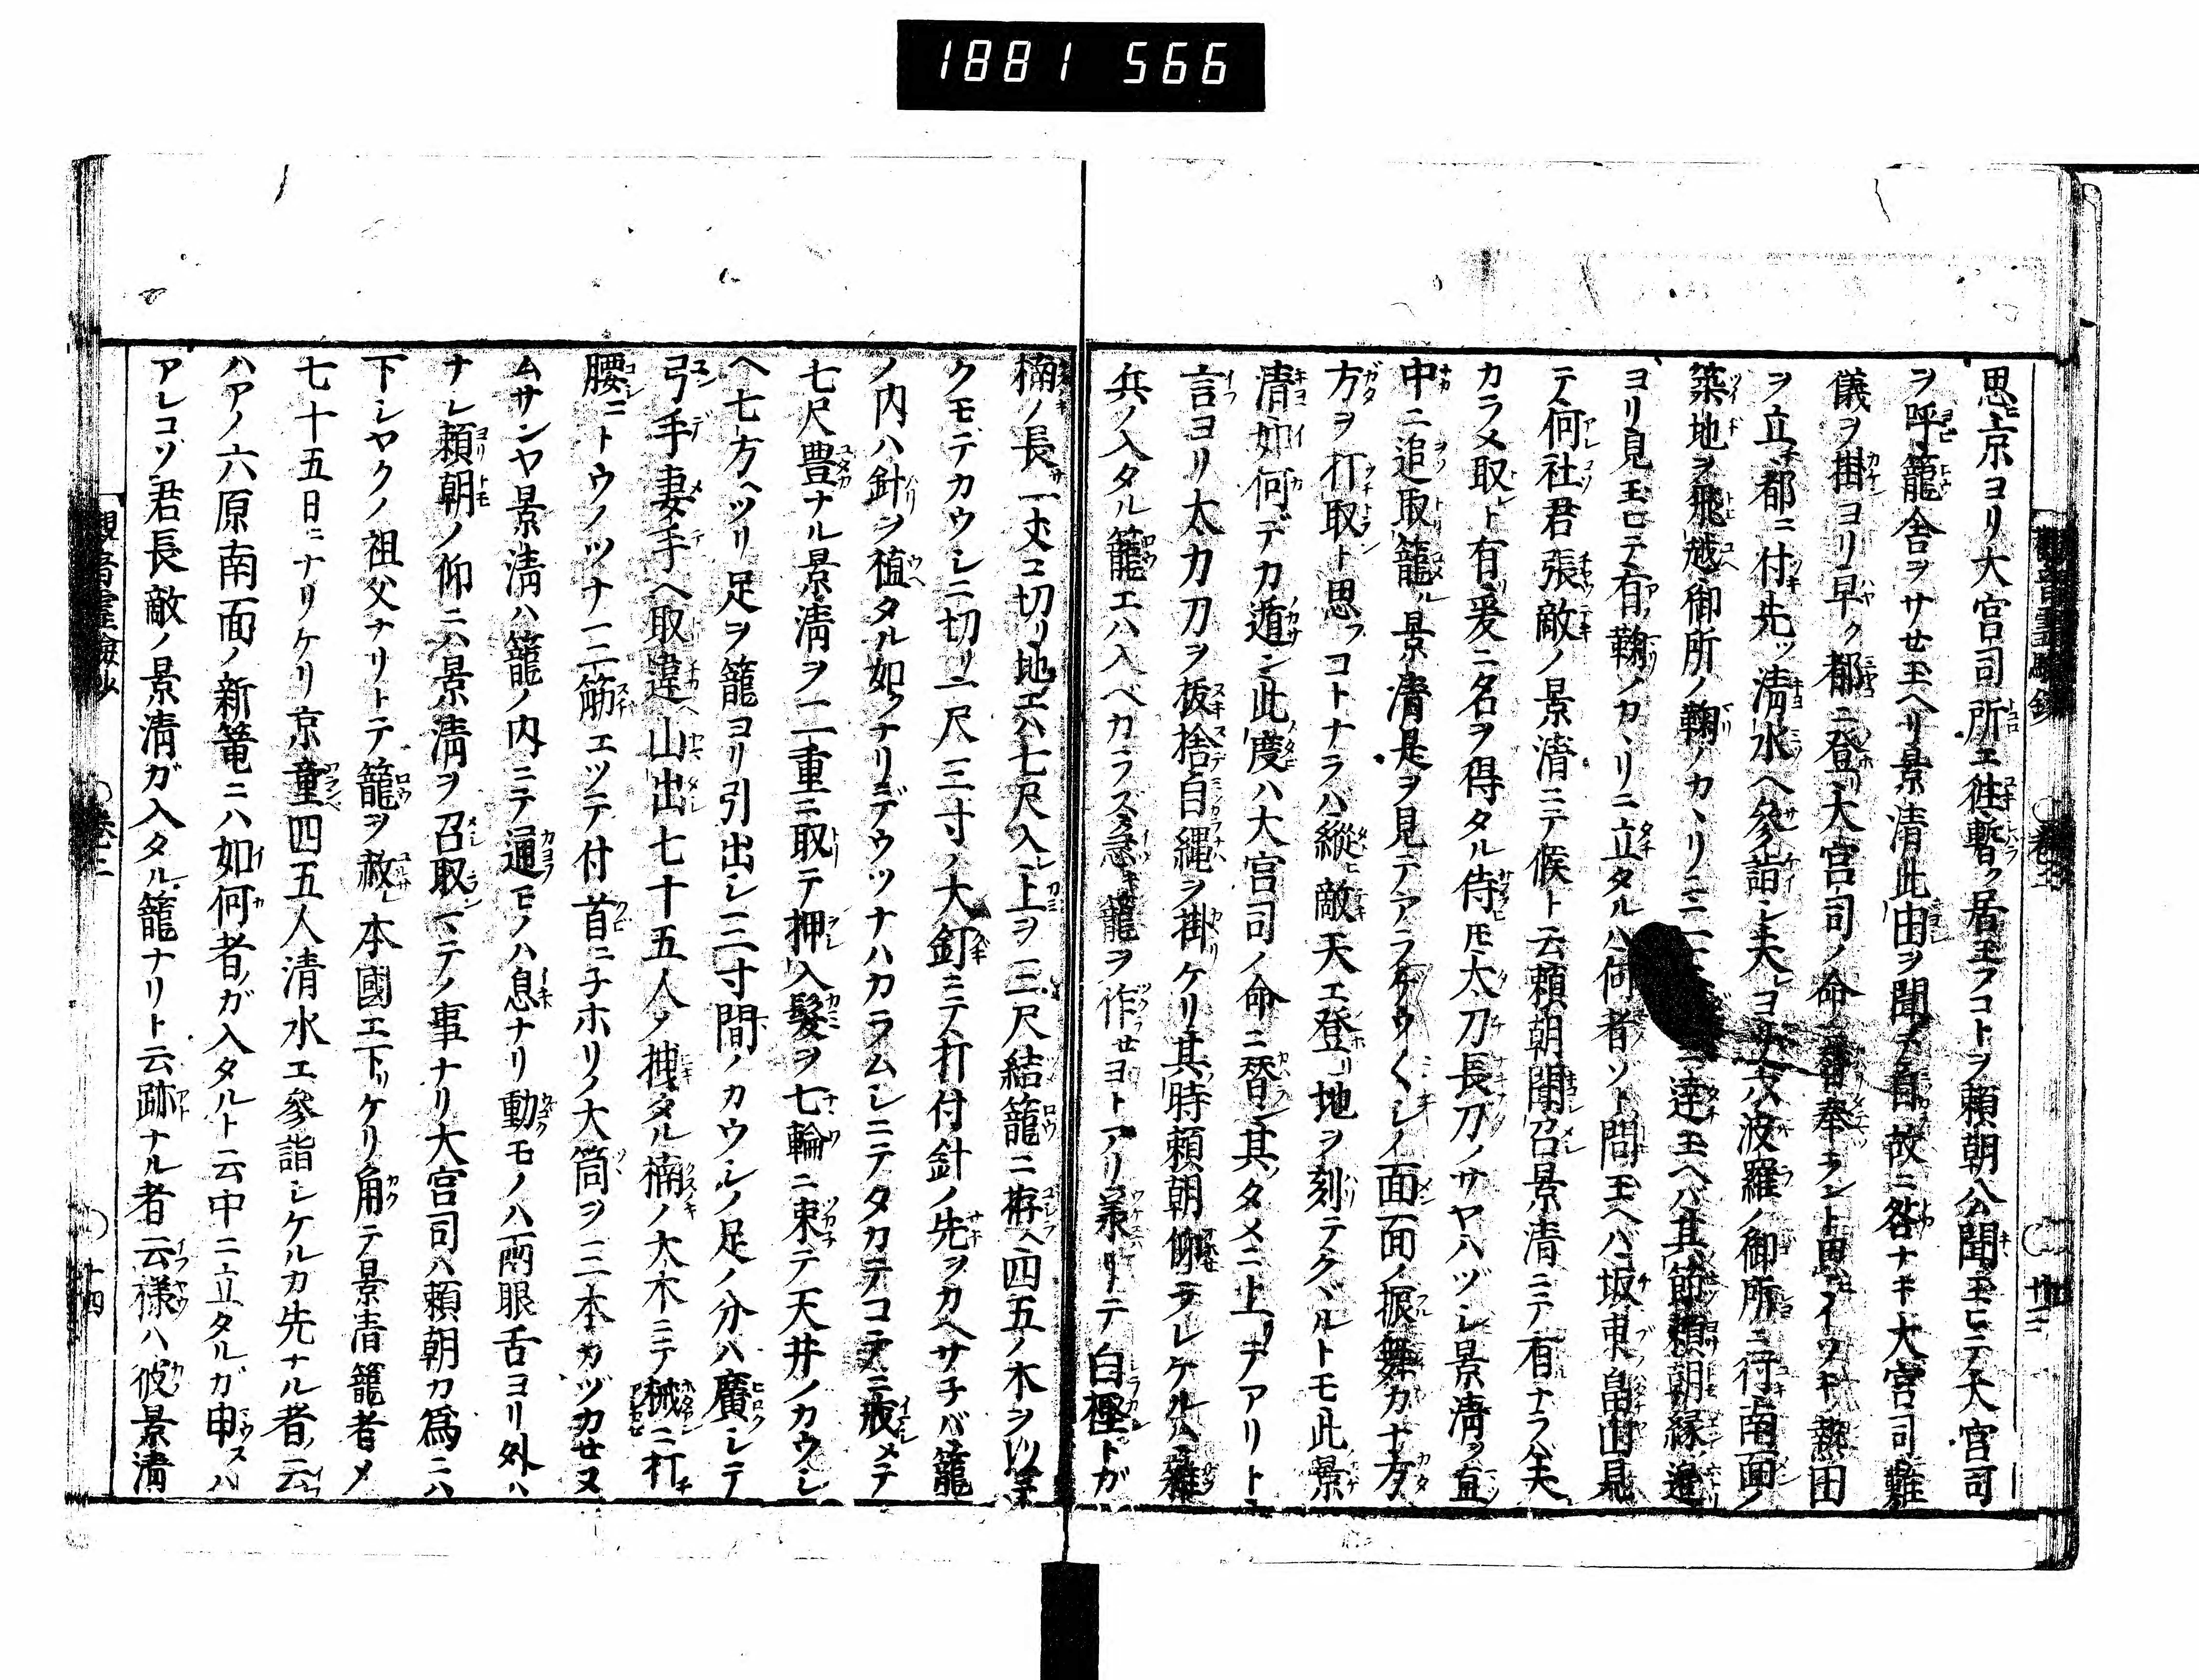 1881 566
思ヒ上京ヨリ大宮司所エ往暫ク居玉フコトヲ頼朝公聞玉ヒテ大宮司
ヲ呼テ籠舎ヲサセ玉ヘリ景清此由ヲ聞テ自故ニ咎ナキ大宮司難
儀ヲ掛ヨリ早ク都ニ登大宮司ノ命ニ替奉ラント思イツキ熱田
ヲ立都ニ付先ツ清水ヘ參詣シ夫ヨリ六波羅ノ御所ニ行南面ノ
築地ヲ飛越御所ノ鞠ノカヽリニ二
ニ達玉ヘバ其節頼朝縁ノ邊
ヨリ見玉ヒテ有鞠ノカヽリニ立タルハ何者ソト問玉ヘハ坂東畠山見
テ何社君張敵ノ景清ニテ候ト云頼朝聞召景清ニテ有ナラハ夫
カラメ取レト有爰ニ名ヲ得タル侍モ太刀長刀ノサヤハヅシ景清ヲ直
中ニ追取籠ル景清是ヲ見テアラケウ〱シノ面面ノ振舞カナ方
方ヲ打取ト思フコトナラハ縱ヒ敵天エ登リ地ヲ刻テクヾルトモ此景
清如何デカ遁ン此度ハ大宮司ノ命ニ替ン其タメニ上リテアリト
言ヨリ太力刀ヲ抜捨白縄ヲ掛ケリ其時頼朝仰ラレケルハ雜
兵ノ入タル籠エハ入ベカラス急キ籠ヲ作セヨトアリ羕リテ白樫トガ
楠ノ長サ一丈ニ切リ地エハ七尺入レ上ヲ三尺結籠ニ拵ヘ四五ノ木ヲ以テ
クモデカウシニ切リ一尺三寸ノ大釘ニテ打付針ノ先ヲカヘサチバ籠
ノ内ハ針ヲ植タル如クナリデウツナハカラムシニテタカテコテニ戒メテ
七尺豊ナル景清ヲ二重ニ取テ押入髪ヲ七輪ニ束テ天井ノカウシ
ヘ七方ヘツリ足ヲ籠ヨリ引出シ三寸間ノカウシノ足ノ分ハ廣シテ
弓手妻手ヘ取違山出七十五人ノ拽タル楠ノ大木ニテ械ニ打
腰ニトウノツナ一二筋エツテ付首ニ子ホリノ大筒ヲ三本カヅカせヌ
ムサンヤ景清ハ籠ノ内ニテ通モノハ息ナリ動モノハ兩眼舌ヨリ外ハ
ナレ頼朝ノ仰ニハ景清ヲ召取ンマテノ事ナリ大宮司ハ頼朝カ爲ニハ
下シヤクノ祖父ナリトテ籠ヲ赦レ本國エ下リケリ角テ景清籠者メ
七十五日ニナリケリ京童四五人清水エ參詣シケルカ先ナル者云
ハアノ六原南面ノ新篭ニハ如何者ガ入タルト云中ニ立タルガ申スハ
アレコソ君長敵ノ景清ガ入タル籠ナリト云跡ナル者云樣ハ彼景清